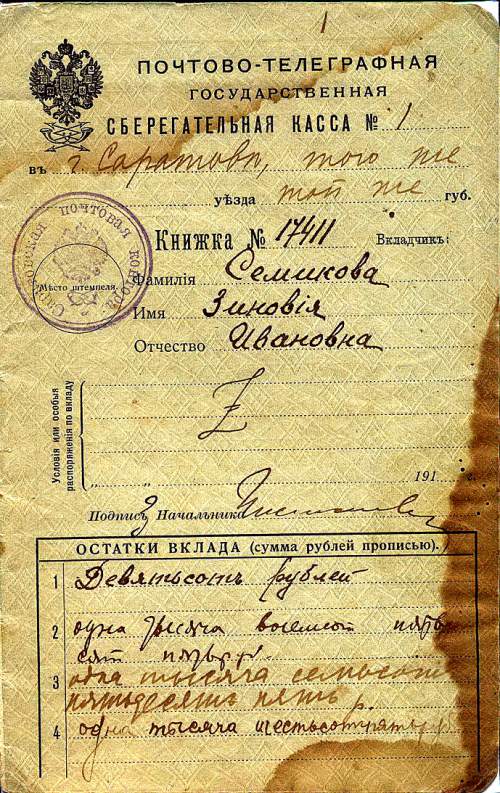 1
ПОЧТОВО-ТЕЛЕГРАФНАЯ
ГОСУДАРСТВЕННАЯ
СБЕРЕГАТЕЛЬНАЯ КАССА № 1
въ г Саратовъ, того же
уѣзда той же губ.
Саратовская почтовая контора
Мѣсто штемпеля.
Книжка № 17411 Вкладчикъ:
Фамилія Семикова
Имя Зиновія
Отчество Ивановна
Условія или особыя
распоряженія по вкладу
Z
„ „ 191 г.
Подпись Начальника
ОСТАТКИ ВКЛАДА (сумма рублей прописью).
1 Девятьсотъ рублей
2 одна тысяча восемьсот пятьде
сят пять р.
3 одна тысяча семьсот
пятьдесятъ пять р.
4 одна тысяча шестьсот пять р.